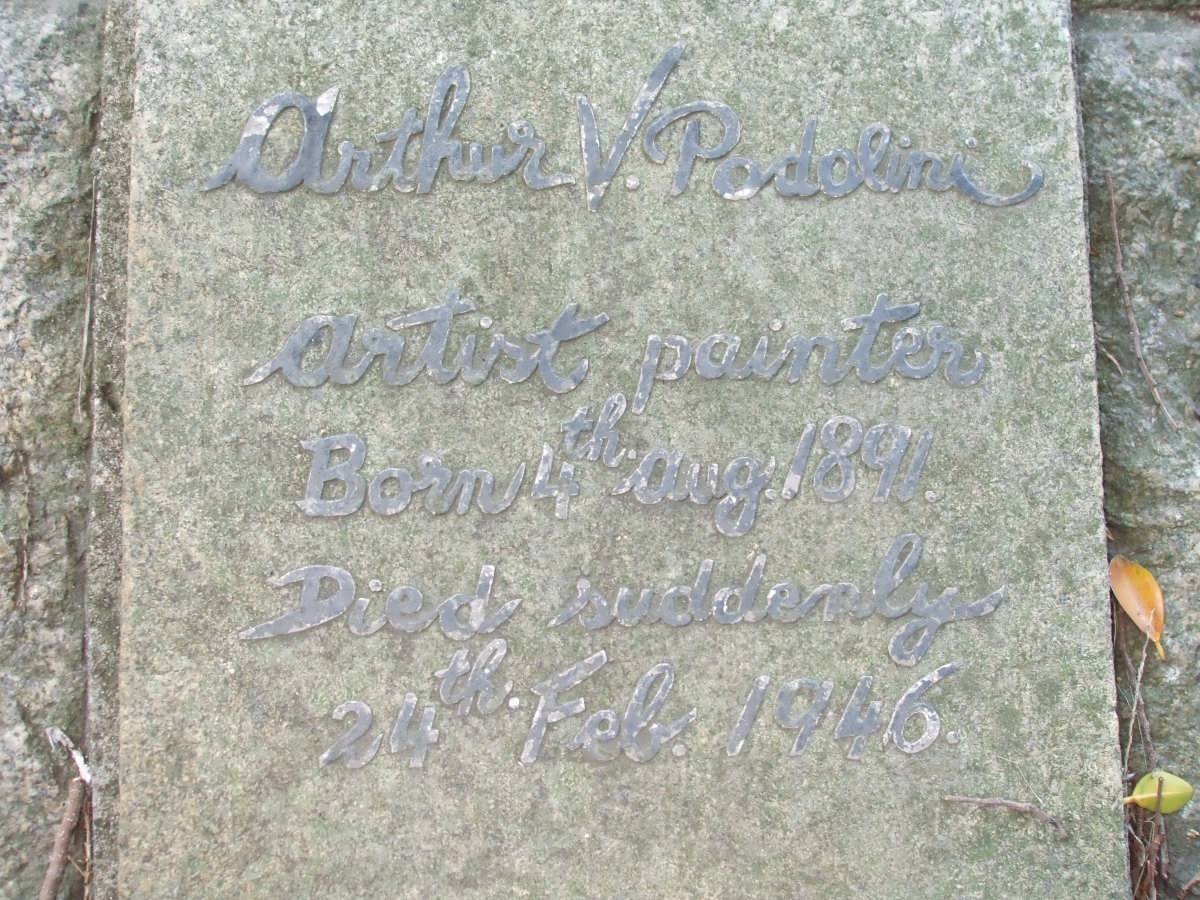 Arthur V. Podolini
Artist painter
Born 4th. Aug. 1891.
Died suddenly
24th. Feb. 1946.